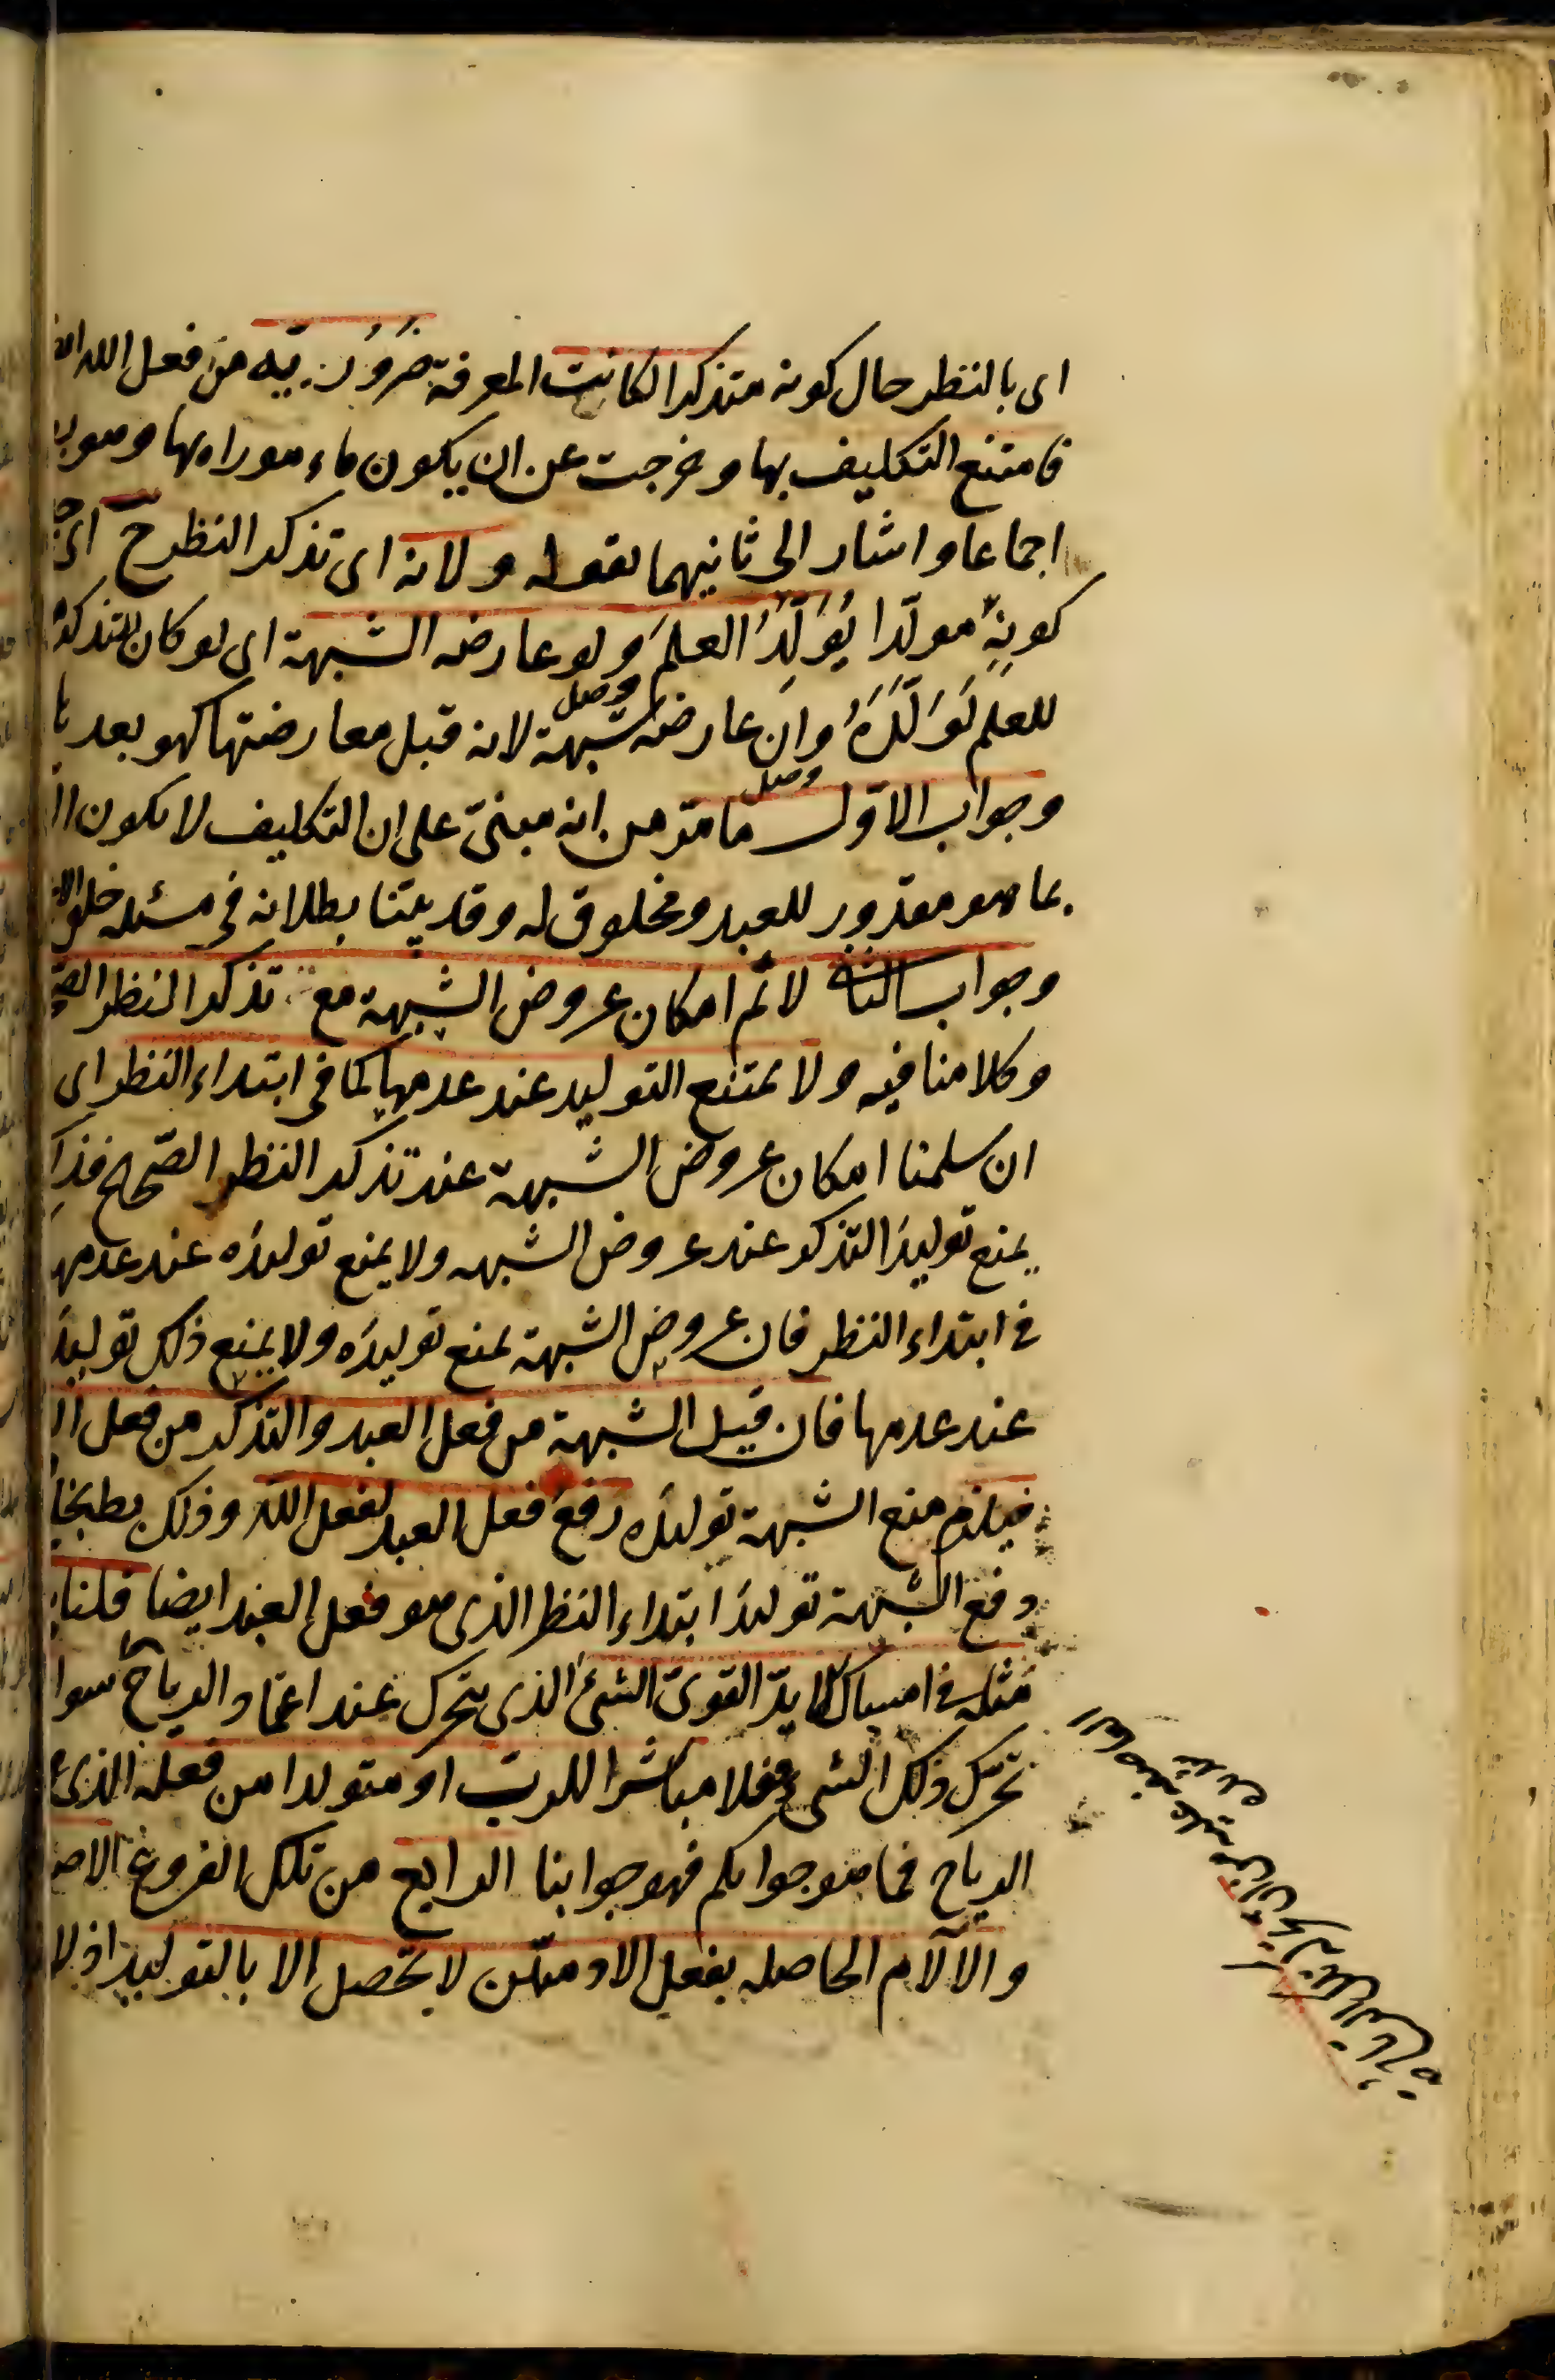 اى بالنظر حال كونه متذكرا لكانت المعرفة ضَرُوُريّه من فعل الله
فامتنع التكليف بها وخرجت عن ان يكون ماءمورا بها وهو
اجماعا واشار الى ثانيهما بقوله ولانه اى تذكر النظر ح اى
كونِهِ مولّدا يُوَلِّدُ العلمَ ولو عارضه الشبهة اى لو كان التذكر
للعلم لَوَلَّدَهُ وان عارضه الشبهة لانه قبل معارضتها كهو بعد
وجواب الاوّل ما مرّ من انه مبنىّ على ان التكليف لا يكون
بما هو مقدور للعبد ومخلوق له وقد بيّنا بطلانه فى مسئله خلق
وجواب الثانى لانم امكان عروض الشبهة مع تذكر النظر
وكلامنا فيه ولا يمتنع التوليد عند عدمها كما فى ابتداء النظر اى
ان سلمنا امكان عروض الشبهة عند تذكر النظر الصّحيح
يمنع توليدَ التذكر عند عروض الشبهه ولا يمنع توليدَه عند عدمها
فى ابتداء النظر فان عروض الشبهة يمنع توليدَه ولا يمنع ذلك توليدَ
عند عدمها فان قيل الشبهة من فعل العبد والتذكر من فعل
فيلزم منع الشبهة توليدَه دفعَ فعل العبد لفعل الله وذلك بط
دفع الشبهة توليدَ ابتداء النظر الذى هو فعل العبد ايضا قلنا
مثله فى امساك الايدّ القوىّ الشئ الذى يتحرك عند اعتماد الرياح سوا
تحرّك ذلك الشى فعلا مباشرا للرب او متولدا من فعله الذى
الرياح فما هو جوابكم فهو جوابنا الرابع من تلك الفروع
والآلام الحاصله بفعل الادميّين لا يحصل الا بالتوليد اذ لا